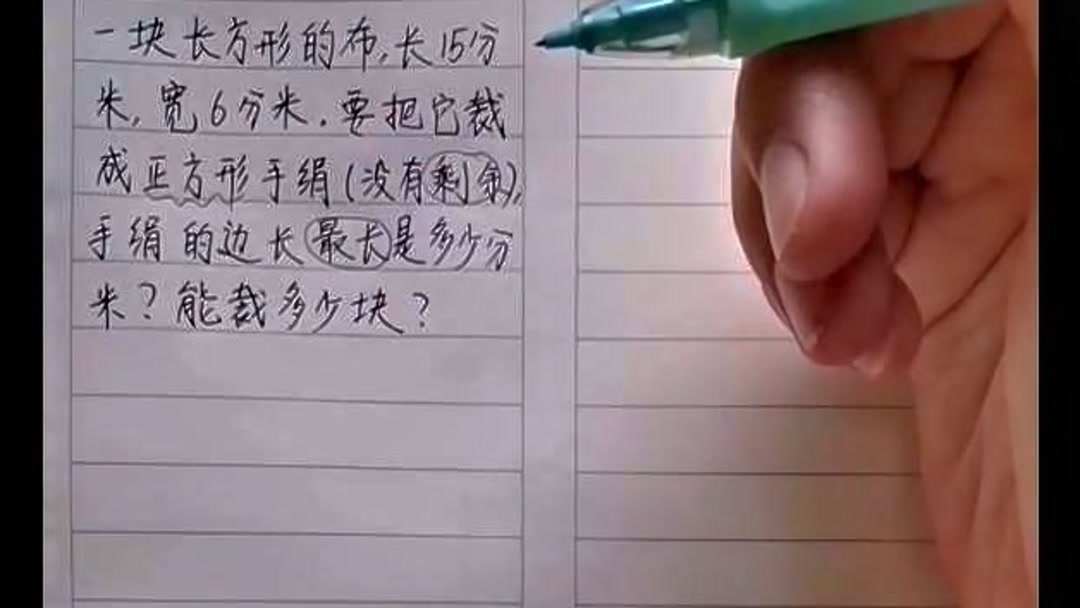 一块长方形的布,长15分
米,宽6分米.要把它裁
成正方形手绢(没有剩余),
手绢的边长最长是多少分
米?能裁多少块?